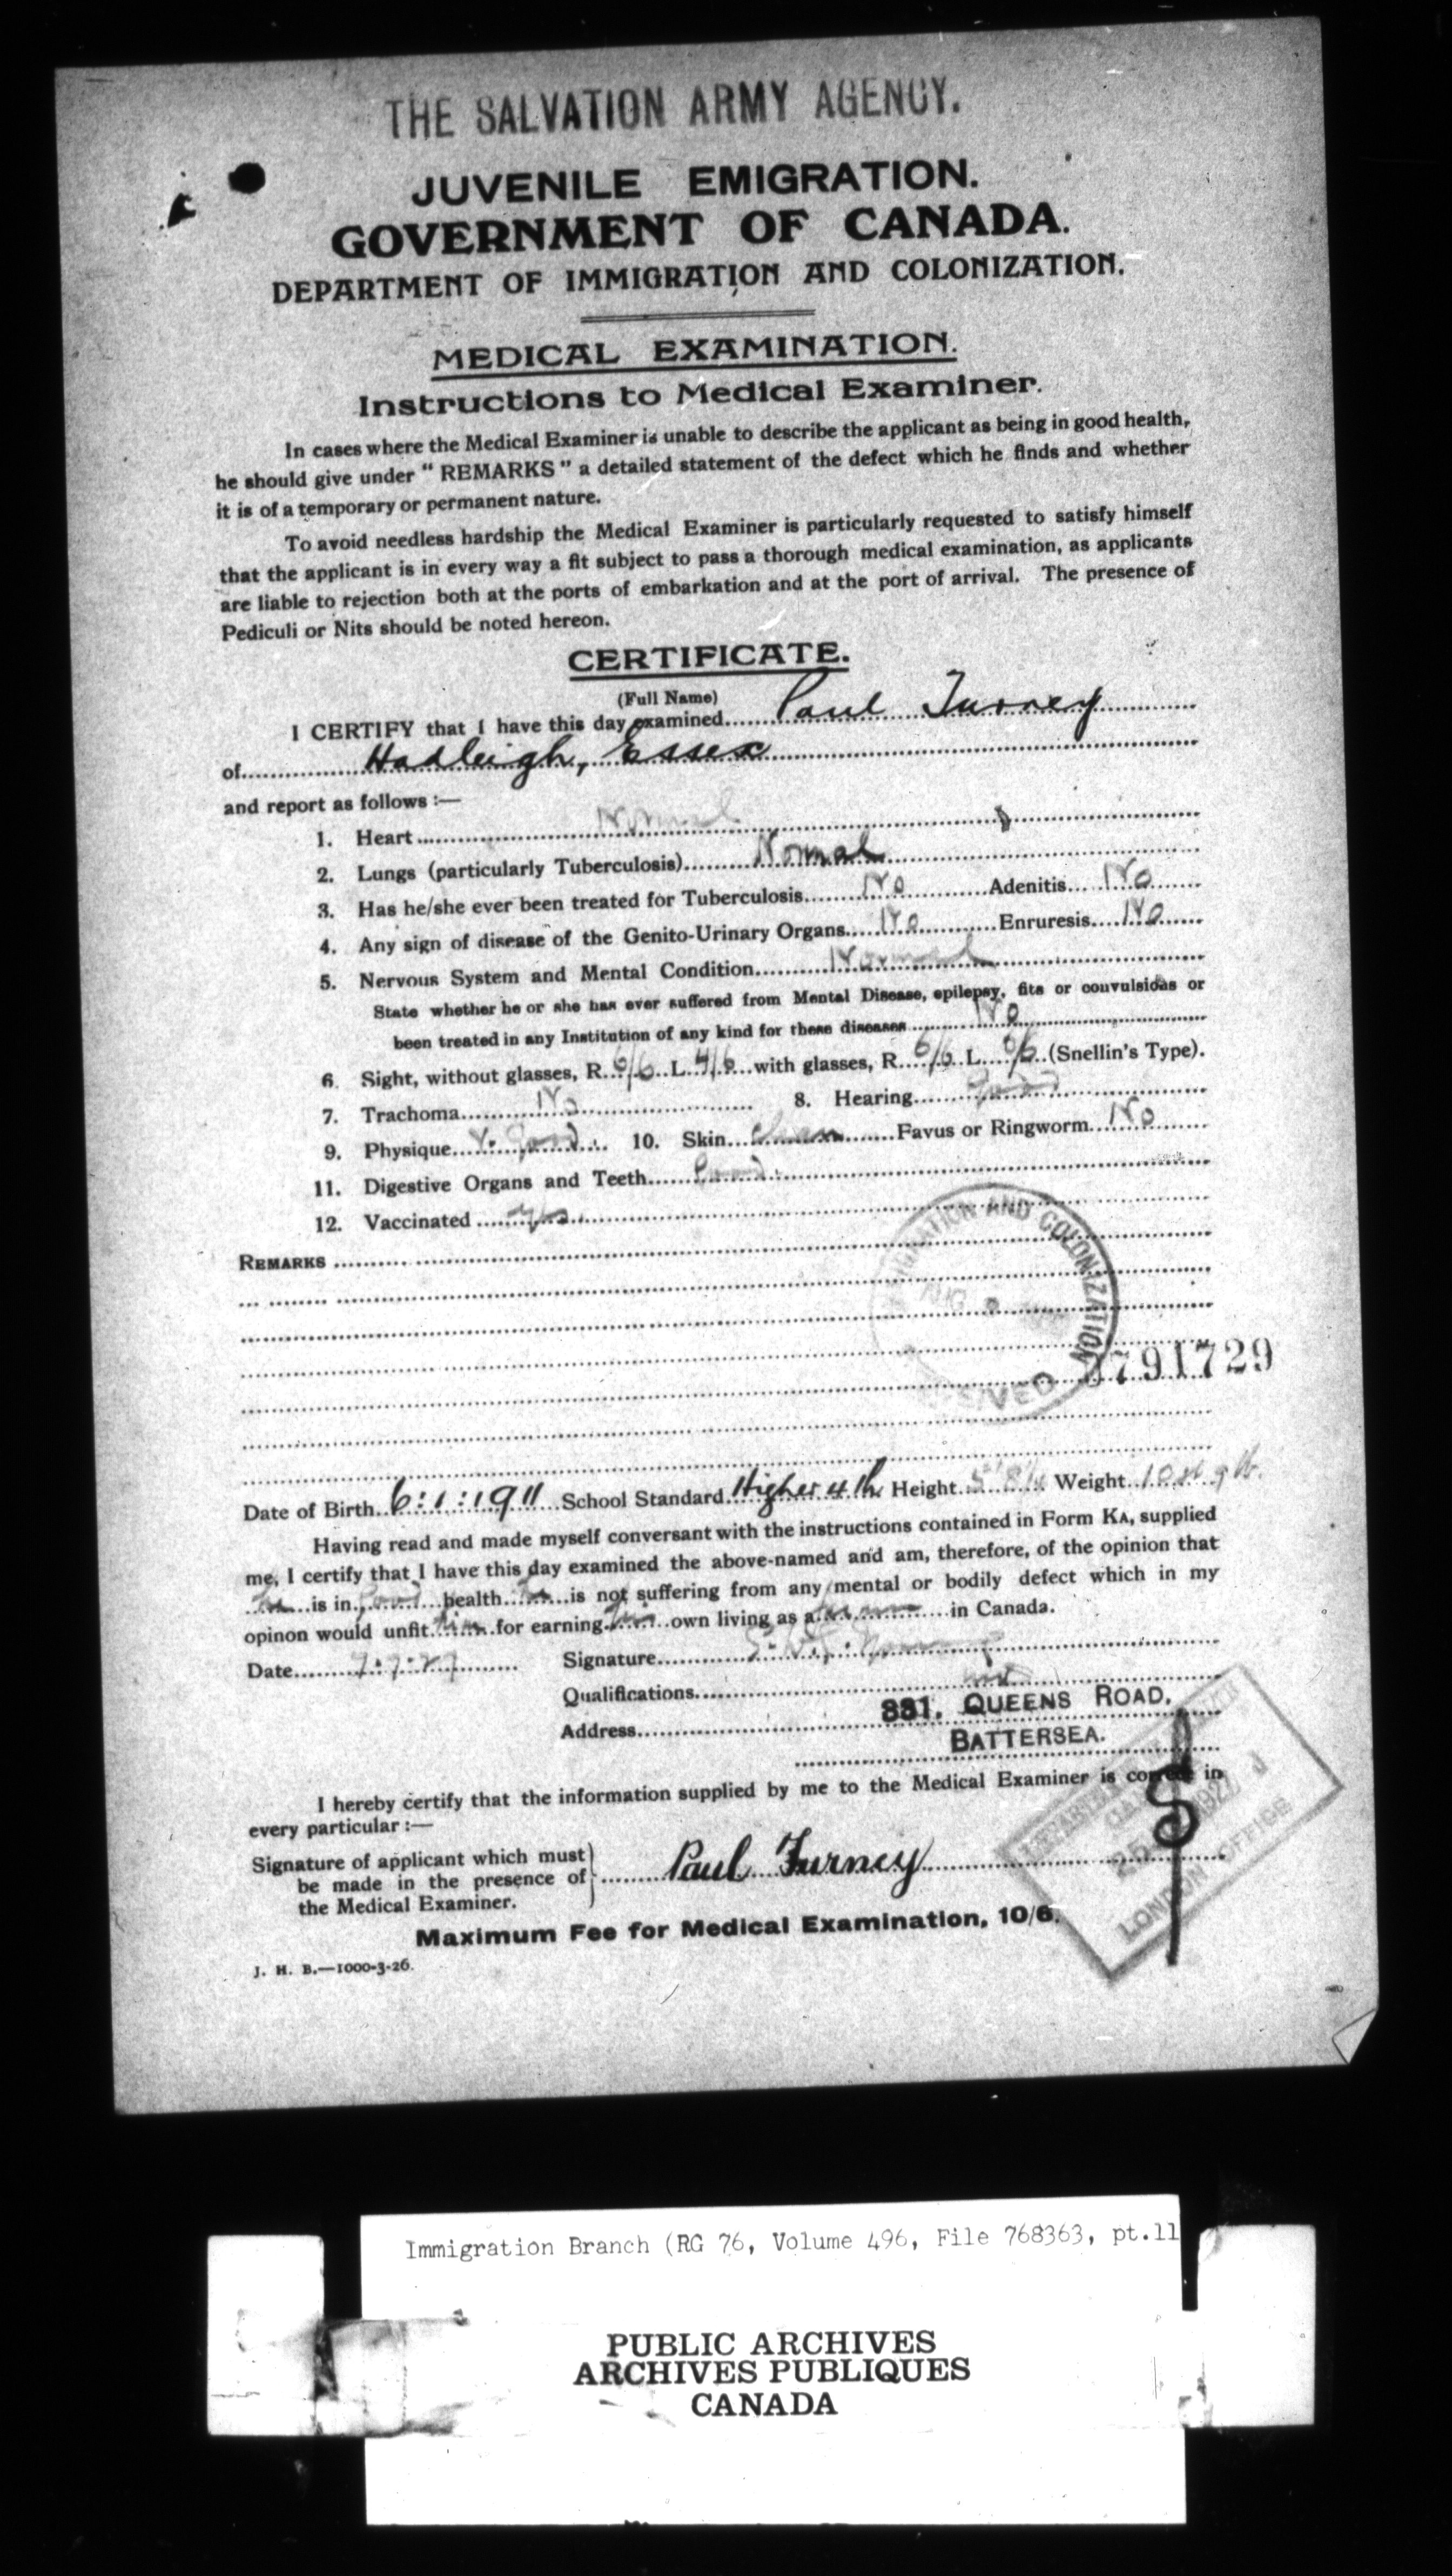 THE SALVATION ARMY AGENCY.
JUVENILE EMIGRATION.
GOVERNMENT OF CANADA.
DEPARTMENT OF IMMIGRATION AND COLONIZATION.
MEDICAL EXAMINATION.
Instructions to Medical Examiner.
In cases where the Medical Examiner is unable to describe the applicant as being in good health,
he should give under "REMARKS" a detailed statement of the defect which he finds and whether
it is of a temporary or permanent nature.
To avoid needless hardship the Medical Examiner is particularly requested to satisfy himself
that the applicant is in every way a fit subject to pass a thorough medical examination, as applicants
are liable to rejection both at the ports of embarkation and at the port of arrival. The presence of
Pediculi or Nits should be noted hereon.
CERTIFICATE.
(Full Name)
I CERTIFY that I have this day examined Paul Turney
of Hadleigh, Essex
and report as follows :—
1. Heart Normal
2. Lungs (particularly Tuberculosis) Normal
3. Has he/she ever been treated for Tuberculosis No Adenitis No
4. Any sign of disease of the Genito-Urinary Organs No Enruresis No
5. Nervous System and Mental Condition Normal
State whether he or she has ever suffered from Mental Disease, epilepsy, fits or convulsions or
been treated in any Institution of any kind for these diseases No
6. Sight, without glasses, R. 6/6 L. 4/6 with glasses, R. 6/6 L. 6/6 (Snellin's Type).
7. Trachoma No 8. Hearing Good
9. Physique V. Good. 10. Skin Clean Favus or Ringworm No
11. Digestive Organs and Teeth Good.
12. Vaccinated Yes
REMARKS
IMMIGRATION AND COLONIZATION
AUG
RECEIVED
791729
Date of Birth 6:1:1911 School Standard Higher 4th Height 5' 8¼ Weight 10 st 9 lb.
Having read and made myself conversant with the instructions contained in Form KA, supplied
me, I certify that I have this day examined the above-named and am, therefore, of the opinion that
he is in good health he is not suffering from any mental or bodily defect which in my
opinon would unfit him for earning his own living as a in Canada.
Date 7.7.27 Signature
Qualifications
Address 331. QUEENS ROAD,
BATTERSEA.
I hereby certify that the information supplied by me to the Medical Examiner is correct in
every particular :—
Signature of applicant which must
be made in the presence of
the Medical Examiner.
Paul Turney
1927
LONDON OFFICE
Maximum Fee for Medical Examination, 10/6.
J. H. B.—1000-3-26.
Immigration Branch (RG 76, Volume 496, File 768363, pt.11
PUBLIC ARCHIVES
ARCHIVES PUBLIQUES
CANADA